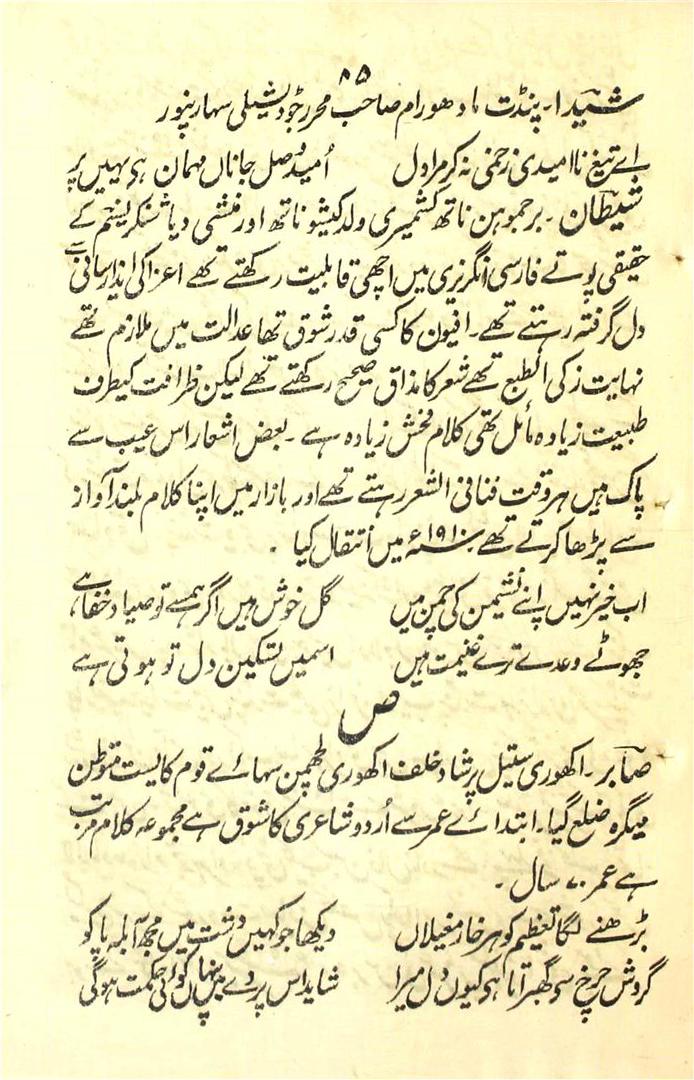 ۸۵
شیدا۔ پنڈت مادھورام صاحب محرر جوڈیشیلی سہارنپور
اے تیغ ناامیدی زخمی نہ کر مرا دل اُمید وصل جاناں مہمان ہی یہیں پر
شیطان۔ برجموہن ناتھ کشمیری ولد کیشوناتھ اور منشی دیا شنکر نسیم کے
حقیقی پوتے فارسی انگریزی میں اچھی قابلیت رکھتے تھے اعزا کی ایذا رسانی سے
دل گرفتہ رہتے تھے۔ افیون کا کسی قدر شوق تھا عدالت میں ملازم تھے
نہایت زکی الطبع تھے شعر کا مذاق صحیح رکھتے تھے لیکن ظرافت کیطرف
طبیعت زیادہ مائل تھی کلام فحش زیادہ ہے۔ بعض اشعار اس عیب سے
پاک ہیں ہر وقت فنا فی الشعر رہتے تھے اور بازار میں اپنا کلام بلند آواز
سے پڑھا کرتے تھے ۱۹۱۰ء میں انتقال کیا۔
اب خیر نہیں اپنے نشیمن کی چمن میں گل خوش ہیں اگر ہمسے تو صیاد خفا ہے
جھوٹے وعدے ترے غنیمت ہیں اسمیں تسکین دل تو ہوتی ہے
ص
صابر۔ اکھوری ستیل پرشاد خلف اکھوری لچھمن سہائے قوم کایست متوطن
ضلع گیا۔ ابتدائے عمر سے اُردو شاعری کا شوق ہے مجموعہ کلام مرتب
ہے عمر ۷۰ سال۔
بڑھنے لگا تعظیم کو ہر خار مغیلاں دیکھا جو کہیں دشت میں مجھ آبلہ پا کو
گردش چرخ سی گھبراتا ہی کیوں دل میرا شاید اس پردے میں پنہاں کوئی حکمت ہوگی